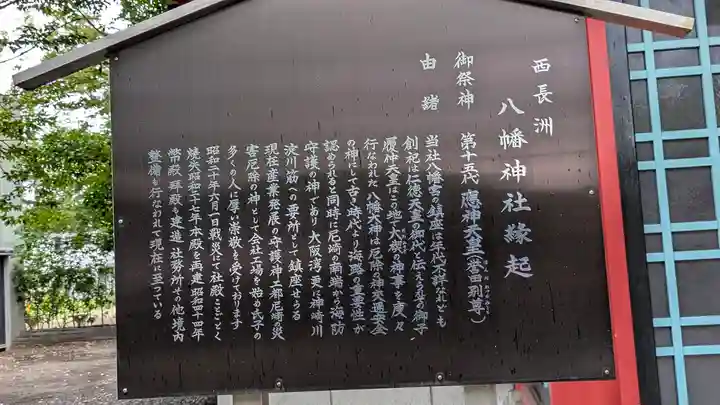 西長洲
八幡神社縁起
御祭神 第十五代應神天皇(誉田別尊)
由緒
当社八幡宮の鎮座は年代不詳なれども
創祀は仁徳天皇の御代と伝え其の御子
履仲天皇はこの地で大祓の神事を度々
行なわれた八幡大神は厄除の神天道安全
の神にして古き時代より海路の重要性が
認められると同時に尼崎の南端から海防
守護の神であり大阪湾更に神崎川
淀川筋への要所として鎮座せらる
現在産業発展の守護神工都尼崎の災
害厄除の神として会社工場を始め氏子の
多くの人に厚い崇敬を受けております
昭和二十年六月一日戦災にて社殿ことごとく
焼失昭和三十一年本殿を再建昭和四十四年
幣殿拝殿を建造社務所その他境内
整備も行なわれて現在に至っている